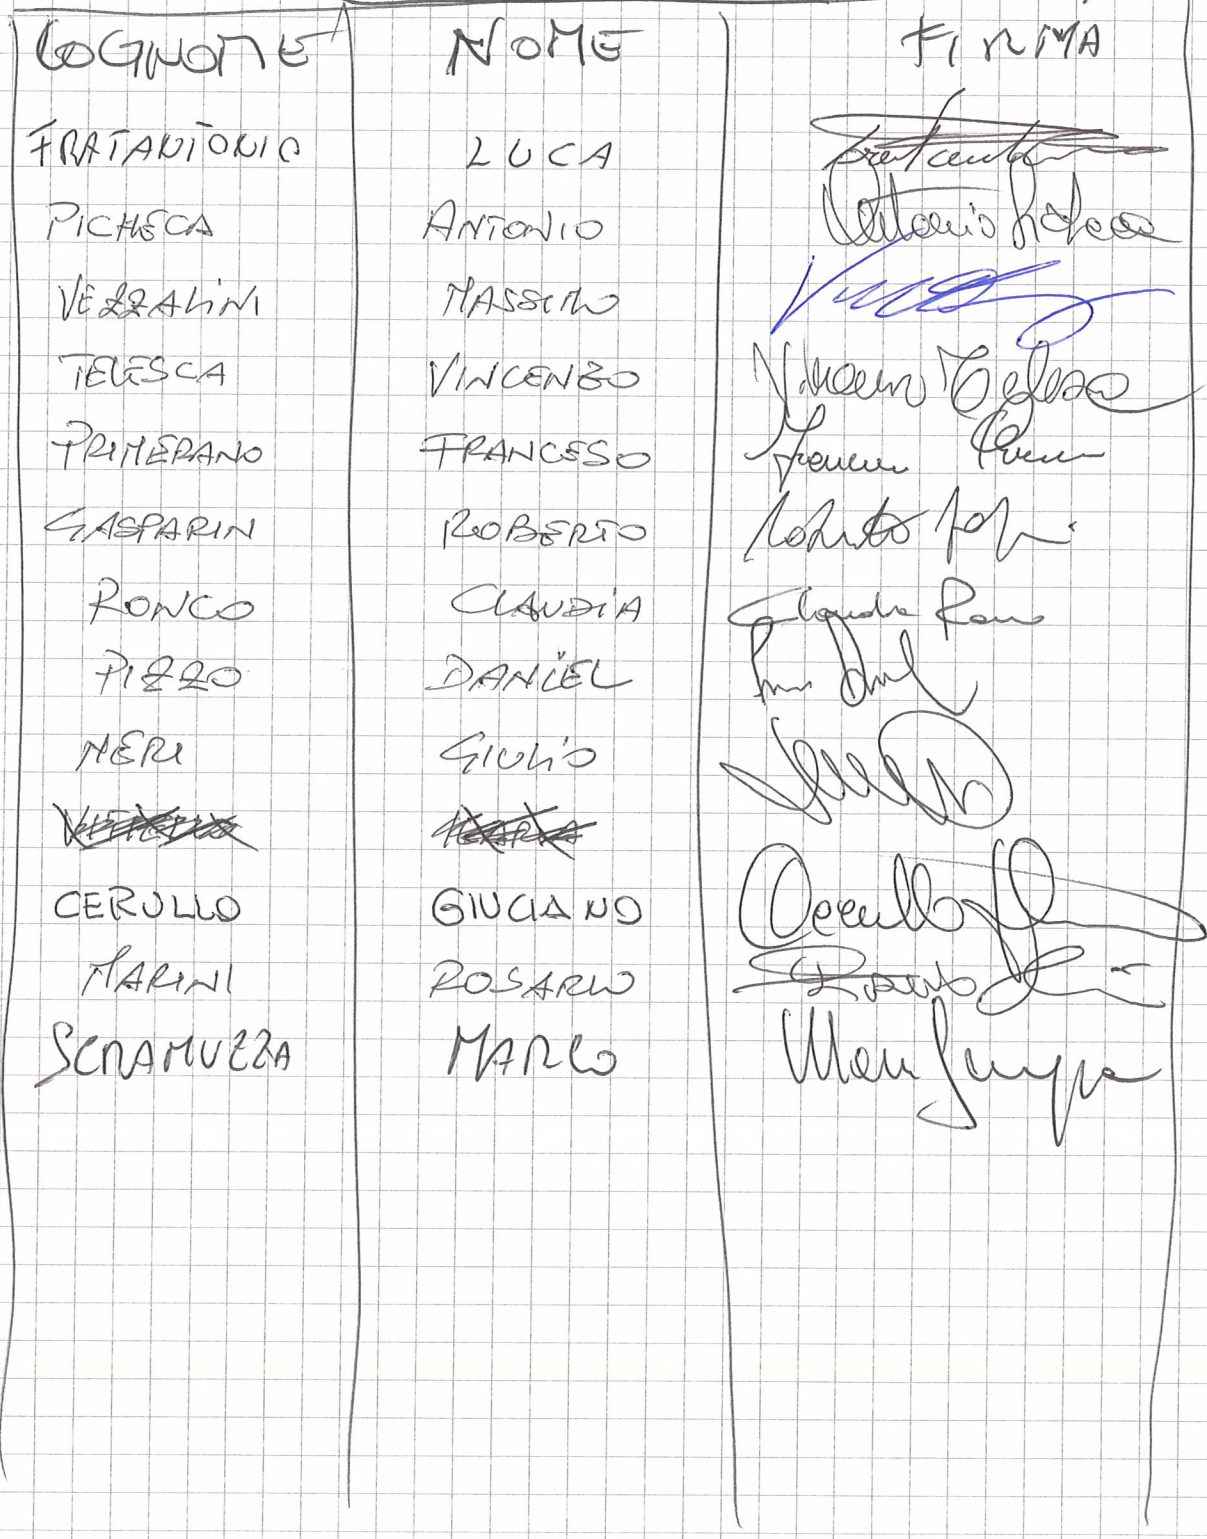 COGNOME NOME FIRMA
FRATANTONIO LUCA
PICHECA ANTONIO Antonio Picheca
VEZZALINI MASSIMO
TELESCA VINCENZO Vincenzo Telesca
PRIMERANO FRANCESO
GASPARIN ROBERTO Roberto
RONCO CLAUDIA Claudia Ronco
PIZZO DANIEL
NERI GIULIO
CERULLO GIULIANO Cerullo
MARINI ROSARIO
SCRAMUZZA MARCO